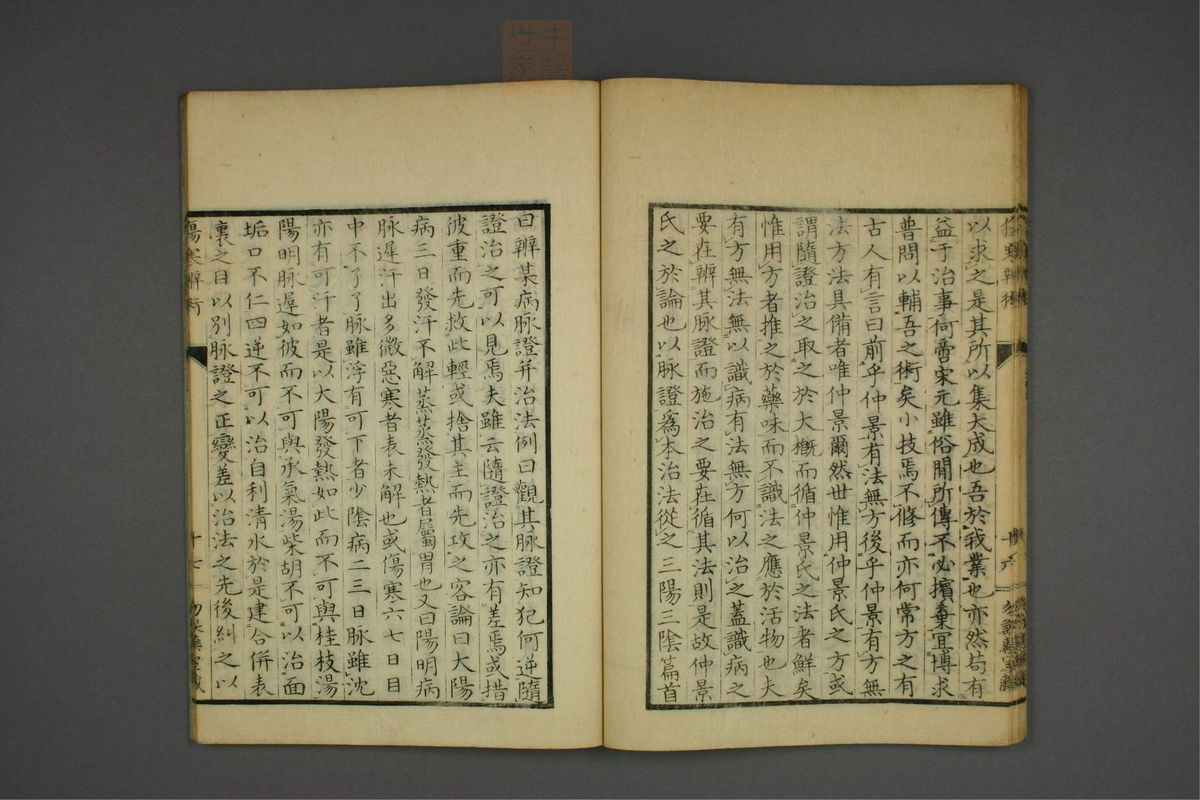 以求之是其所以集大成也吾於我業也亦然苟有
益于治事何啻宋元雖俗間所傳不必擯棄宜博求
普問以輔吾之術矣小技焉不修而亦何常方之有
古人有言曰前乎仲景有法無方後乎仲景有方無
法方法具備者唯仲景爾然世惟用仲景氏之方或
謂隨證治之取之於大概而循仲景氏之法者鮮矣
惟用方者推之於藥味而不識法之應於活物也夫
有方無法無以識病有法無方何以治之蓋識病之
要在辨其脉證而施治之要在循其法則是故仲景
氏之於論也以脉證爲本治法從之三陽三陰篇首
曰辨某病脉證并治法例曰觀其脉證知犯何逆隨
證治之可以見焉夫雖云隨證治之亦有差焉或措
彼重而先救此輕或捨其主而先攻之客論曰大陽
病三日發汗不解蒸蒸發熱者屬胃也又曰陽明病
脉遲汗出多微惡寒者表未解也或傷寒六七日目
中不了了脉雖浮有可下者少陰病二三日脉雖沈
亦有可汗者是以大陽發熱如此而不可與桂枝湯
陽明脉遲如彼而不可與承氣湯柴胡不可以治面
垢口不仁四逆不可以治自利清水於是建合併表
裏之目以別脉證之正變差以治法之先後糾之以
傷寒辨術
十七